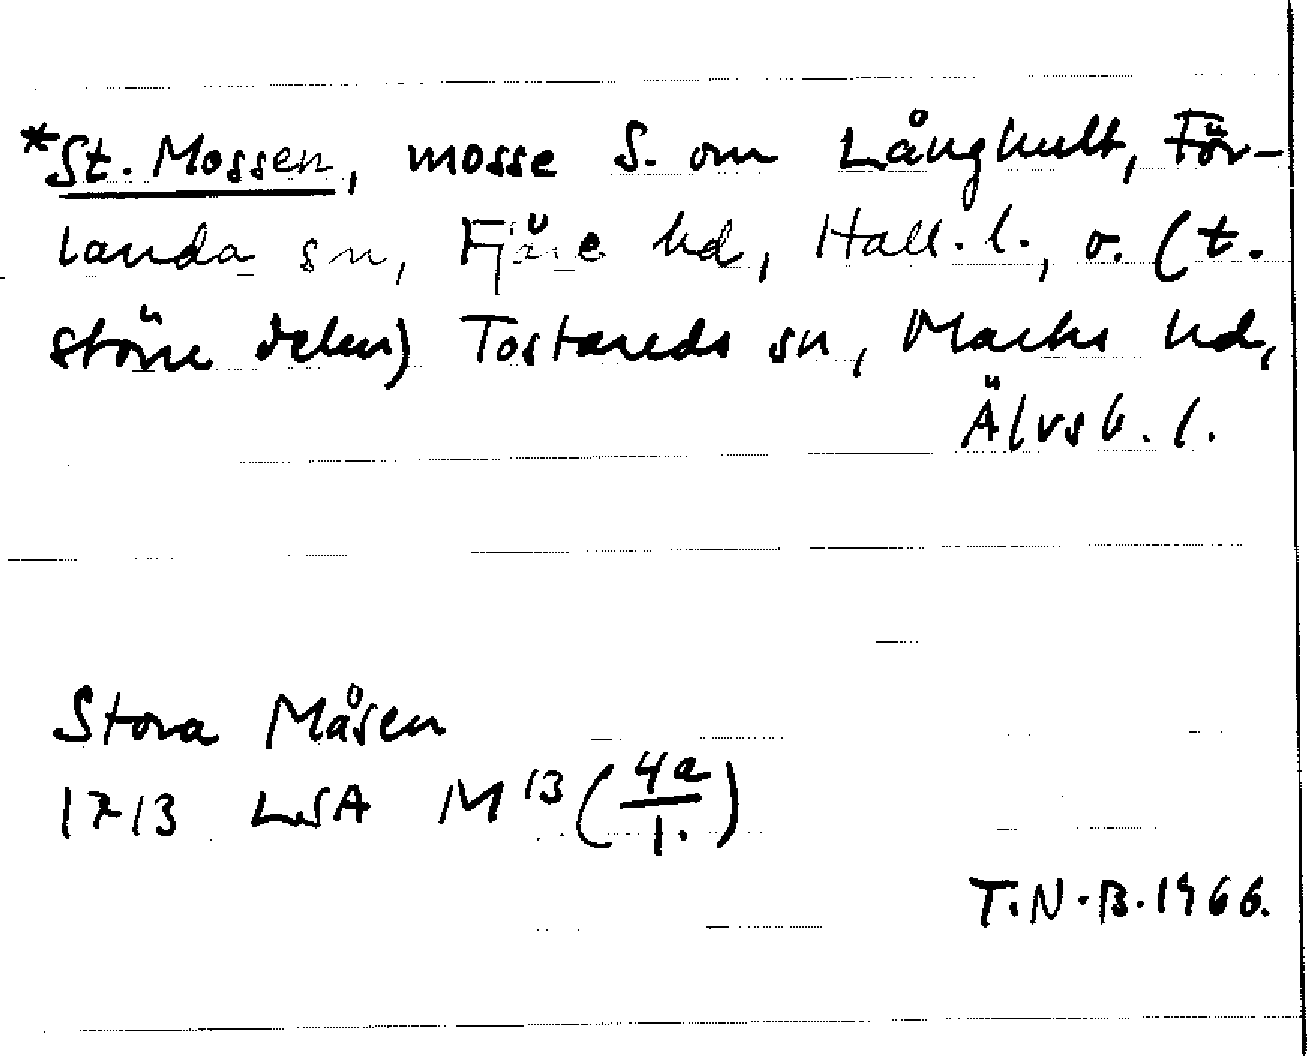 *St. Mossen, mosse S. om Långhult, För-
landa sn, Fjäre hd, Hall. l., o. (t.
större delen) Tostareds sn, Marks hd,
Älvsb. l.
Stora Måsen
1713 LSA M 13 (4a/1.)
T.N.B. 1966.